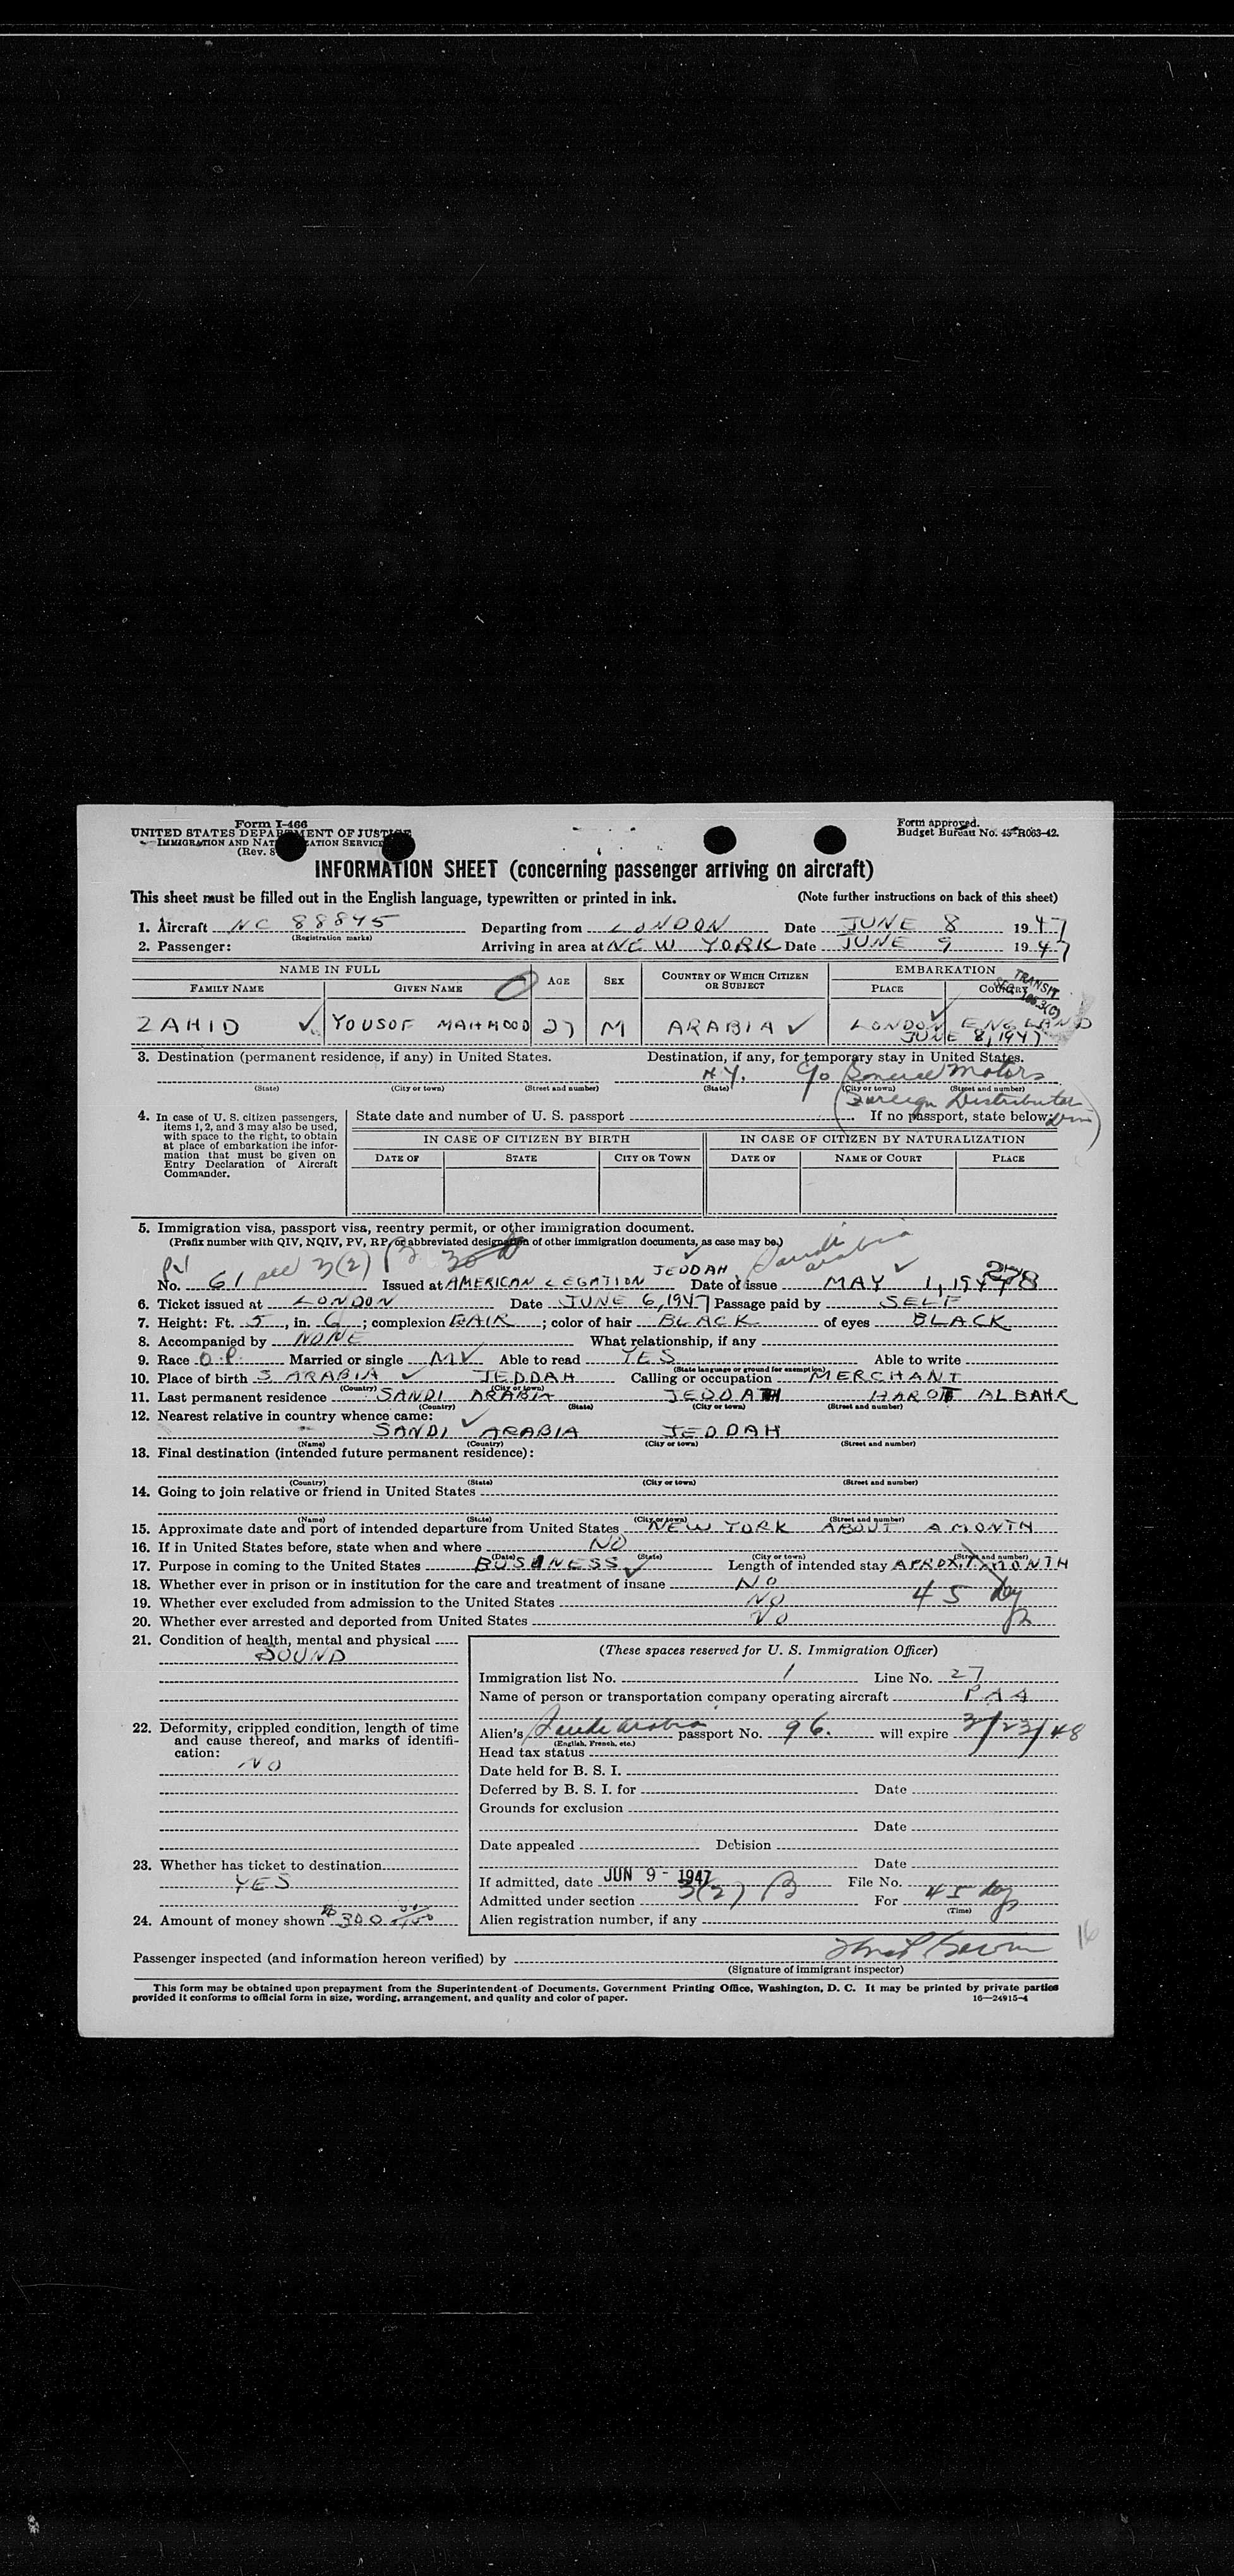 Form I-466
UNITED STATES DEPARTMENT OF JUSTICE
IMMIGRATION AND NATURALIZATION SERVICE
(Rev. 8
Form approved.
Budget Bureau No. 43-R063-42.
INFORMATION SHEET (concerning passenger arriving on aircraft)
This sheet must be filled out in the English language, typewritten or printed in ink. (Note further instructions on back of this sheet)
1. Aircraft NC 88845 Departing from LONDON Date JUNE 8 1947
(Registration marks)
2. Passenger: Arriving in area at NEW YORK Date JUNE 9 1947
NAME IN FULL AGE SEX COUNTRY OF WHICH CITIZEN OR SUBJECT EMBARKATION
FAMILY NAME GIVEN NAME PLACE COUNTRY
TRANSIT
ZAHID YOUSOF MAHMOOD 27 M ARABIA LONDON ENGLAND
JUNE 8, 1947
3. Destination (permanent residence, if any) in United States. Destination, if any, for temporary stay in United States.
N.Y. c/o General Motors
(State) (City or town) (Street and number) (State) (City or town) (Street and number)
(Foreign Distributor Div)
4. In case of U. S. citizen passengers, items 1, 2, and 3 may also be used, with space to the right, to obtain at place of embarkation the information that must be given on Entry Declaration of Aircraft Commander.
State date and number of U. S. passport If no passport, state below:
IN CASE OF CITIZEN BY BIRTH IN CASE OF CITIZEN BY NATURALIZATION
DATE OF STATE CITY OR TOWN DATE OF NAME OF COURT PLACE
5. Immigration visa, passport visa, reentry permit, or other immigration document.
(Prefix number with QIV, NQIV, PV, RP, or abbreviated designation of other immigration documents, as case may be.)
PV 3(2) B JEDDAH Saudi Arabia
No. 61 Issued at AMERICAN LEGATION Date of issue MAY 1, 1947
6. Ticket issued at LONDON Date JUNE 6, 1947 Passage paid by SELF
7. Height: Ft. 5, in. 6; complexion FAIR; color of hair BLACK of eyes BLACK
8. Accompanied by NONE What relationship, if any
9. Race O.P. Married or single M Able to read YES Able to write
(State language or ground for exemption)
10. Place of birth S ARABIA JEDDAH Calling or occupation MERCHANT
(Country) (City or town)
11. Last permanent residence SANDI ARABIA JEDDATH HAROT ALBAHR
(Country) (State) (City or town) (Street and number)
12. Nearest relative in country whence came:
SANDI ARABIA JEDDAH
(Name) (Country) (City or town) (Street and number)
13. Final destination (intended future permanent residence):
(Country) (State) (City or town) (Street and number)
14. Going to join relative or friend in United States
(Name) (State) (City or town) (Street and number)
15. Approximate date and port of intended departure from United States NEW YORK ABOUT A MONTH
16. If in United States before, state when and where NO
(Date) (State) (City or town) (Street and number)
17. Purpose in coming to the United States BUSINESS Length of intended stay APROX. 1 MONTH
18. Whether ever in prison or in institution for the care and treatment of insane NO 45 day
19. Whether ever excluded from admission to the United States NO
20. Whether ever arrested and deported from United States NO
21. Condition of health, mental and physical
SOUND
22. Deformity, crippled condition, length of time and cause thereof, and marks of identification:
NO
23. Whether has ticket to destination
YES
24. Amount of money shown $300
(These spaces reserved for U. S. Immigration Officer)
Immigration list No. 1 Line No. 27
Name of person or transportation company operating aircraft PAA
Alien's Saudi Arabia passport No. 96. will expire 3/23/48
(English, French, etc.)
Head tax status
Date held for B. S. I.
Deferred by B. S. I. for Date
Grounds for exclusion
Date
Date appealed Decision
Date
If admitted, date JUN 9 - 1947 File No.
Admitted under section 3(2) B For 45 days
(Time)
Alien registration number, if any
16
Passenger inspected (and information hereon verified) by
(Signature of immigrant inspector)
This form may be obtained upon prepayment from the Superintendent of Documents, Government Printing Office, Washington, D. C. It may be printed by private parties
provided it conforms to official form in size, wording, arrangement, and quality and color of paper. 16—24915-4